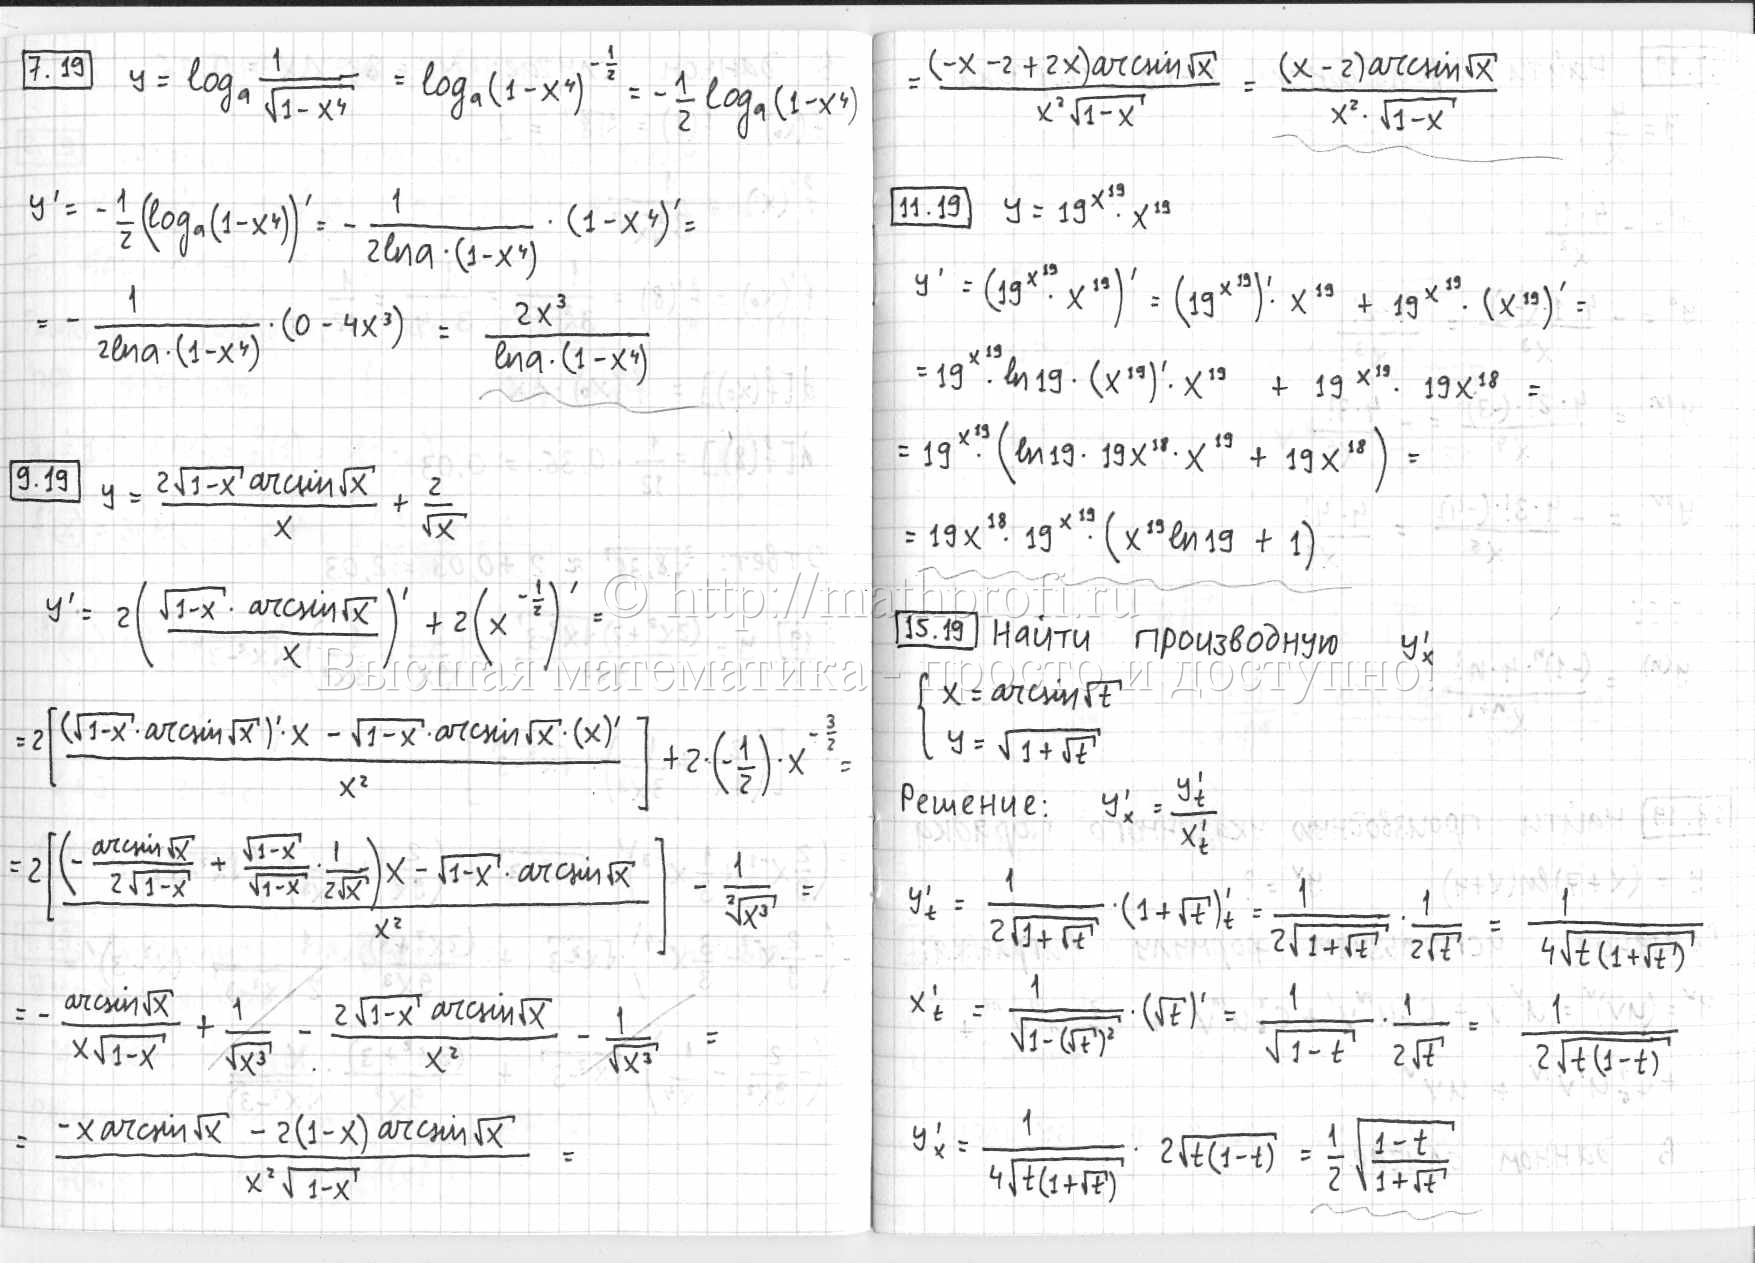 7.19 y = logₐ 1/√(1-x⁴) = logₐ(1-x⁴)^(-1/2) = -1/2 logₐ(1-x⁴)
y' = -1/2 (logₐ(1-x⁴))' = - 1/(2lna·(1-x⁴)) · (1-x⁴)' =
= - 1/(2lna·(1-x⁴)) · (0-4x³) = 2x³/(lna·(1-x⁴))
9.19 y = 2√(1-x) arcsin√x / x + 2/√x
y' = 2(√(1-x) · arcsin√x / x)' + 2(x^(-1/2))' =
= 2[((√(1-x) · arcsin√x)' · x - √(1-x) · arcsin√x · (x)') / x²] + 2·(-1/2)·x^(-3/2) =
= 2[((- arcsin√x/(2√(1-x)) + √(1-x)/√(1-x) · 1/(2√x))x - √(1-x) · arcsin√x) / x²] - 1/²√(x³) =
= - arcsin√x/(x√(1-x)) + 1/√(x³) - 2√(1-x) arcsin√x / x² - 1/√(x³) =
= (-x arcsin√x - 2(1-x) arcsin√x) / (x²√(1-x)) =
= (-x-2+2x)arcsin√x / (x²√(1-x)) = (x-2)arcsin√x / (x²·√(1-x))
11.19 y = 19^(x¹⁹) · x¹⁹
y' = (19^(x¹⁹) · x¹⁹)' = (19^(x¹⁹))' · x¹⁹ + 19^(x¹⁹) · (x¹⁹)' =
= 19^(x¹⁹) · ln19 · (x¹⁹)' · x¹⁹ + 19^(x¹⁹) · 19x¹⁸ =
= 19^(x¹⁹) · (ln19 · 19x¹⁸ · x¹⁹ + 19x¹⁸) =
= 19x¹⁸ · 19^(x¹⁹) · (x¹⁹ ln19 + 1)
© http://mathprofi.ru
Высшая математика - просто и доступно!
15.19 Найти производную y'ₓ
{ x = arcsin√t
y = √(1+√t)
Решение: y'ₓ = y'ₜ/x'ₜ
y'ₜ = 1/(2√(1+√t)) · (1+√t)'ₜ = 1/(2√(1+√t)) · 1/(2√t) = 1/(4√(t(1+√t)))
x'ₜ = 1/√(1-(√t)²) · (√t)' = 1/√(1-t) · 1/(2√t) = 1/(2√(t(1-t)))
y'ₓ = 1/(4√(t(1+√t))) · 2√(t(1-t)) = 1/2 √((1-t)/(1+√t))